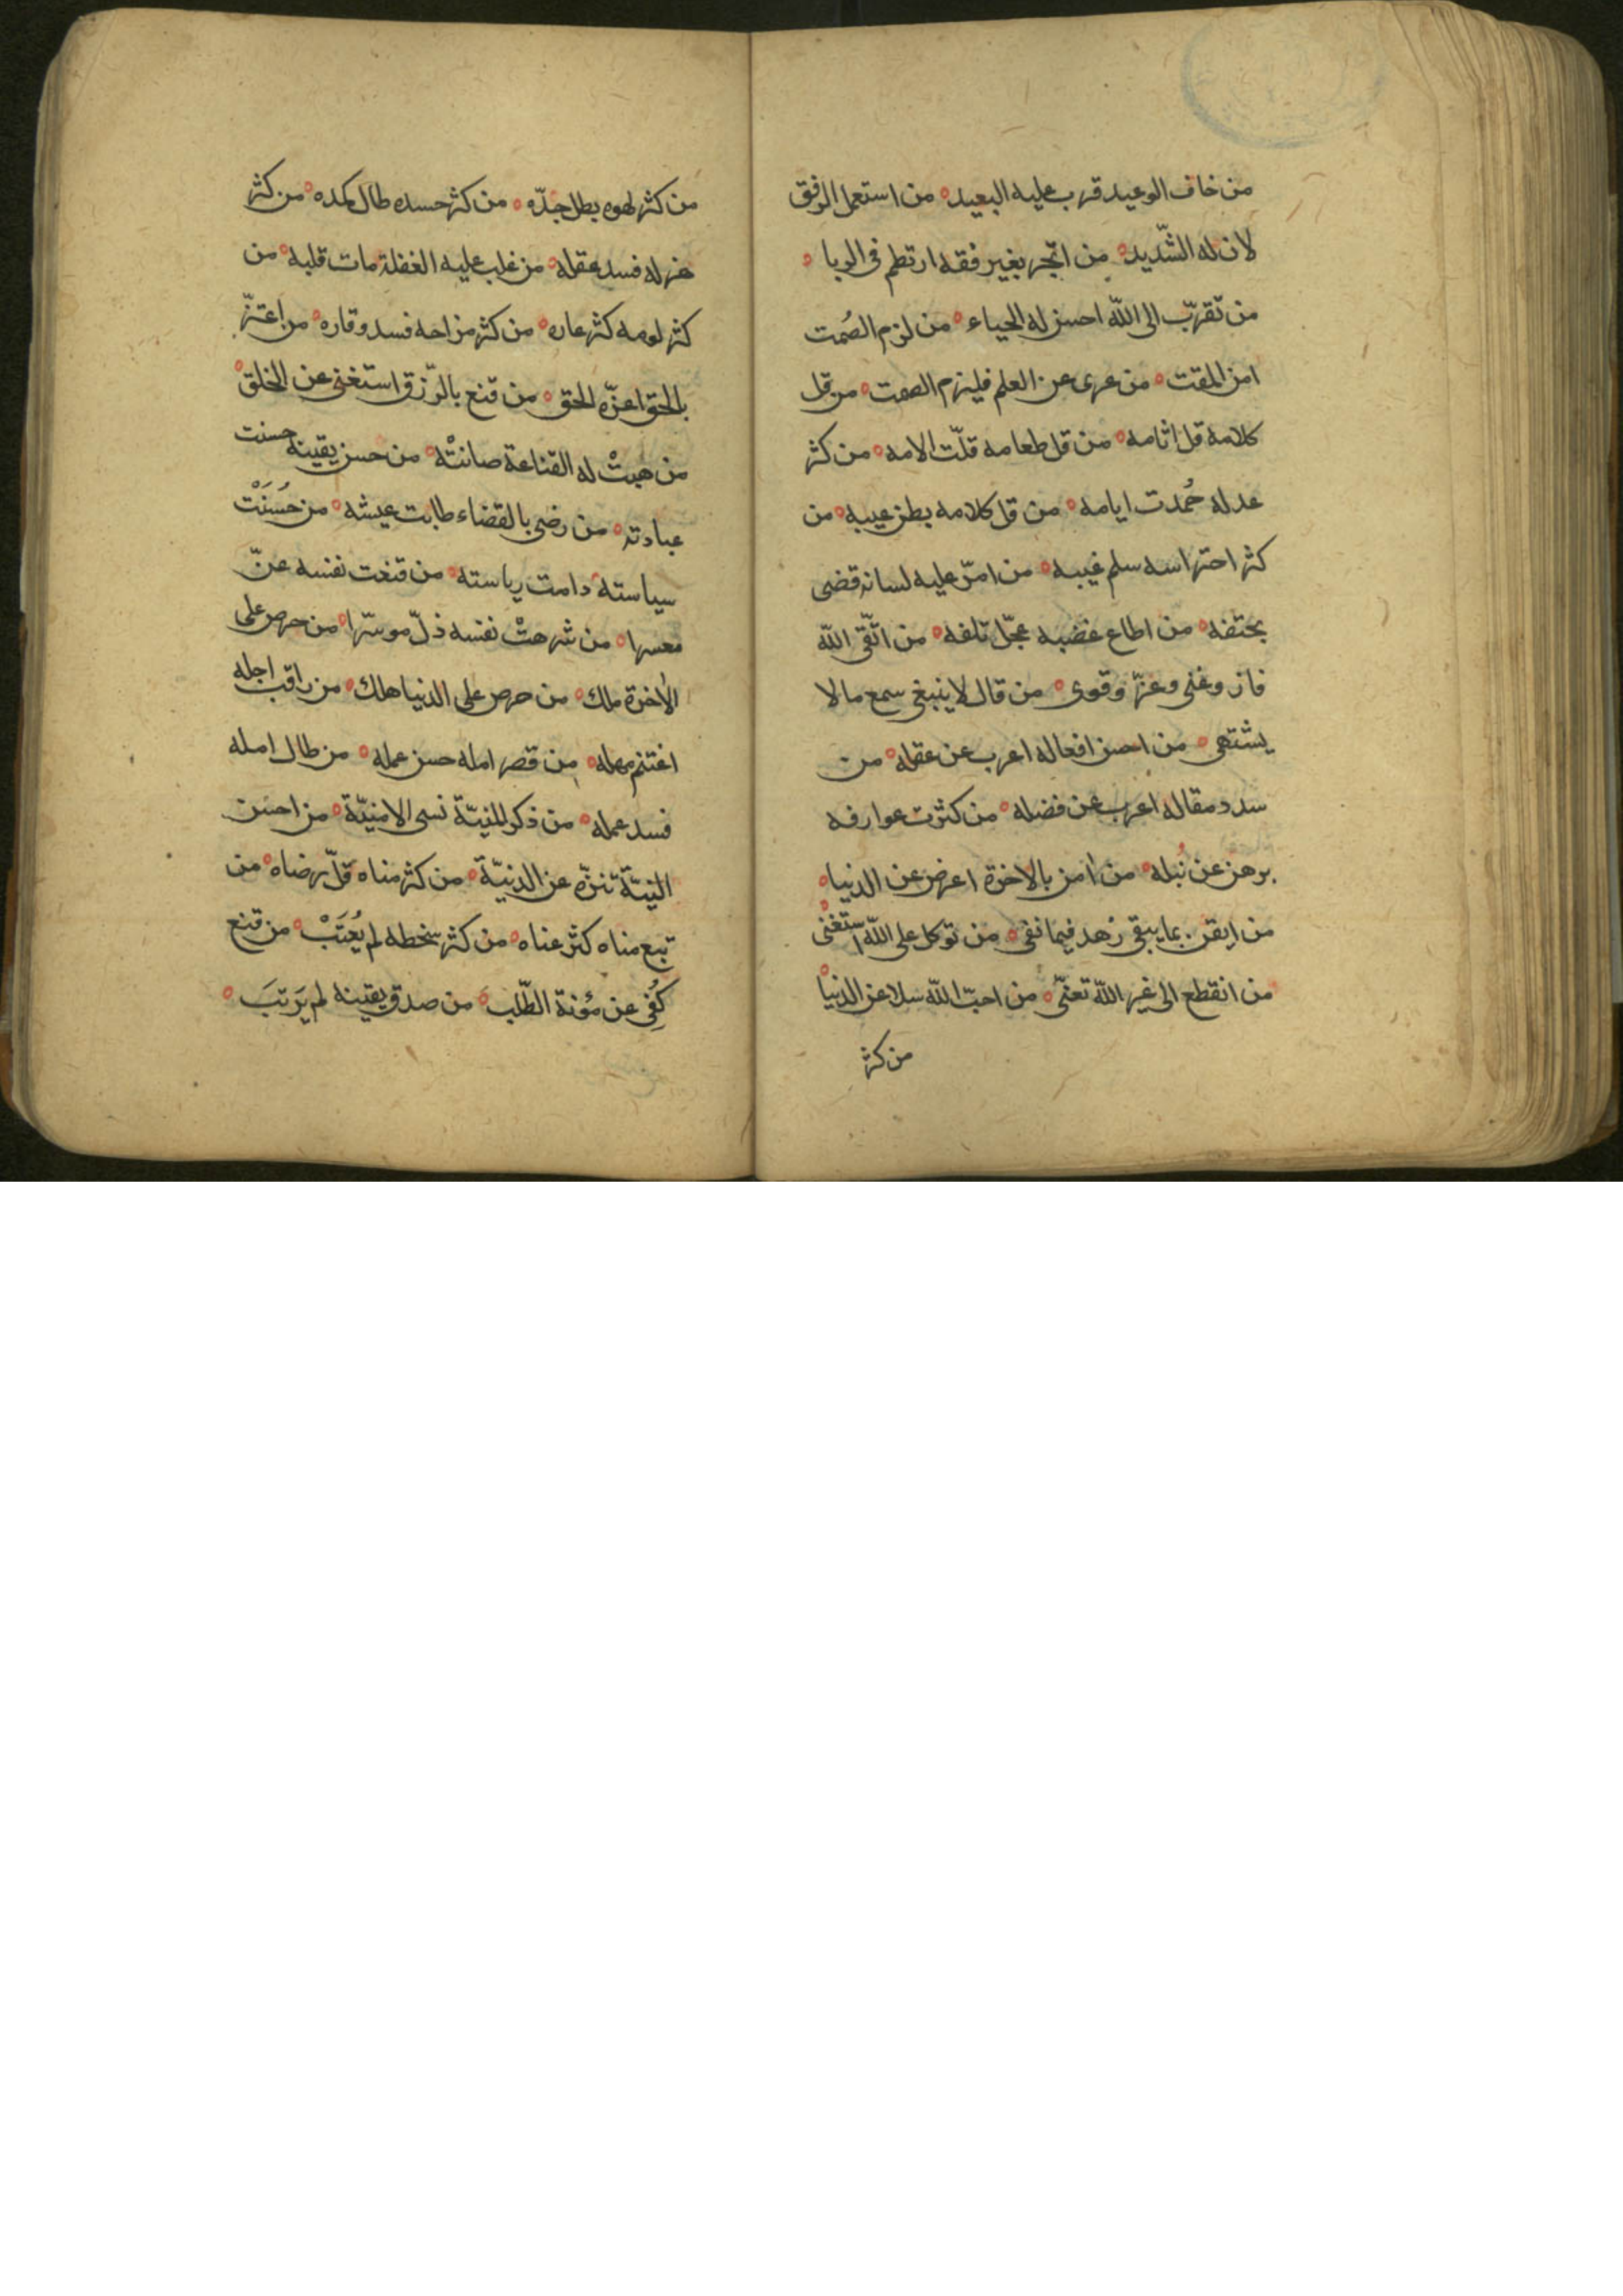 من خاف الوعيد قرب عليه البعيد ۰ من استعمل الرفق
لان له الشّديد ۰ من اتّجر بغير فقه ارتطم فى الربا ۰
من تقرّب الى اللّه احسن له الحباء ۰ من لزم الصُمت
امن المقت ۰ من عرى عن العلم فليزم الصمت ۰ من قل
كلامه قل اثامه ۰ من قل طعامه قلّت الامه ۰ من كثر
عدله حُمدت ايامه ۰ من قل كلامه بطن عيبه ۰ من
كثر احتراسه سلم غيبه ۰ من امّر عليه لسانه قضى
بحتفه ۰ من اطاع غضبه عجّل تلفه ۰ من اتّقى اللّه
فاز وغنى وعزّ وقوى ۰ من قال لا ينبغى سمع ما لا
يشتهى ۰ من احسن افعاله اعرب عن عقله ۰ من
سدد مقاله اعرب عن فضله ۰ من كثرت عوارفه
برهن عن نُبله ۰ من امن بالاخرة اعرض عن الدنيا ۰
من ايقن بما يبقى زهد فيما نفى ۰ من توكل على اللّه استغنى ۰
من انقطع الى غير اللّه تعنّى ۰ من احبّ اللّه سلا عن الدنيا
من كثر
من كثر لهوه بطل جدّه ۰ من كثر حسده طال كمده ۰ من كثر
هزله فسد عقله ۰ من غلب عليه الغفلة مات قلبه ۰ من
كثر لومه كثر عاره ۰ من كثر مزاحه فسد وقاره ۰ من اعتزّ
بالحق اعزّه الحق ۰ من قنع بالرّزق استغنى عن الخلق ۰
من هبتْ له القناعة صانتْه ۰ من حسن يقينه حسنت
عبادته ۰ من رضى بالقضاء طابت عيشه ۰ من حسُنَتْ
سياسته دامت رياسته ۰ من قنعت نفسه عزّ
معسرا ۰ من شرهتْ نفسه ذلّ موسرّا ۰ من حرص على
الاخرة ملك ۰ من حرص على الدنيا هلك ۰ من راقب اجله
اغتنم مهله ۰ من قصر امله حسن عمله ۰ من طال امله
فسد عمله ۰ من ذكر المنيّة نسى الامنيّة ۰ من احسن
النيّة تنزّه عن الدنيّة ۰ من كثر مناه قلّ رضاه ۰ من
تبع مناه كثر عناه ۰ من كثر سخطه لم يُعتَبْ ۰ من قنع
كُفى عن مؤنة الطّلب ۰ من صدق يقينه لم يَرتبَ ۰